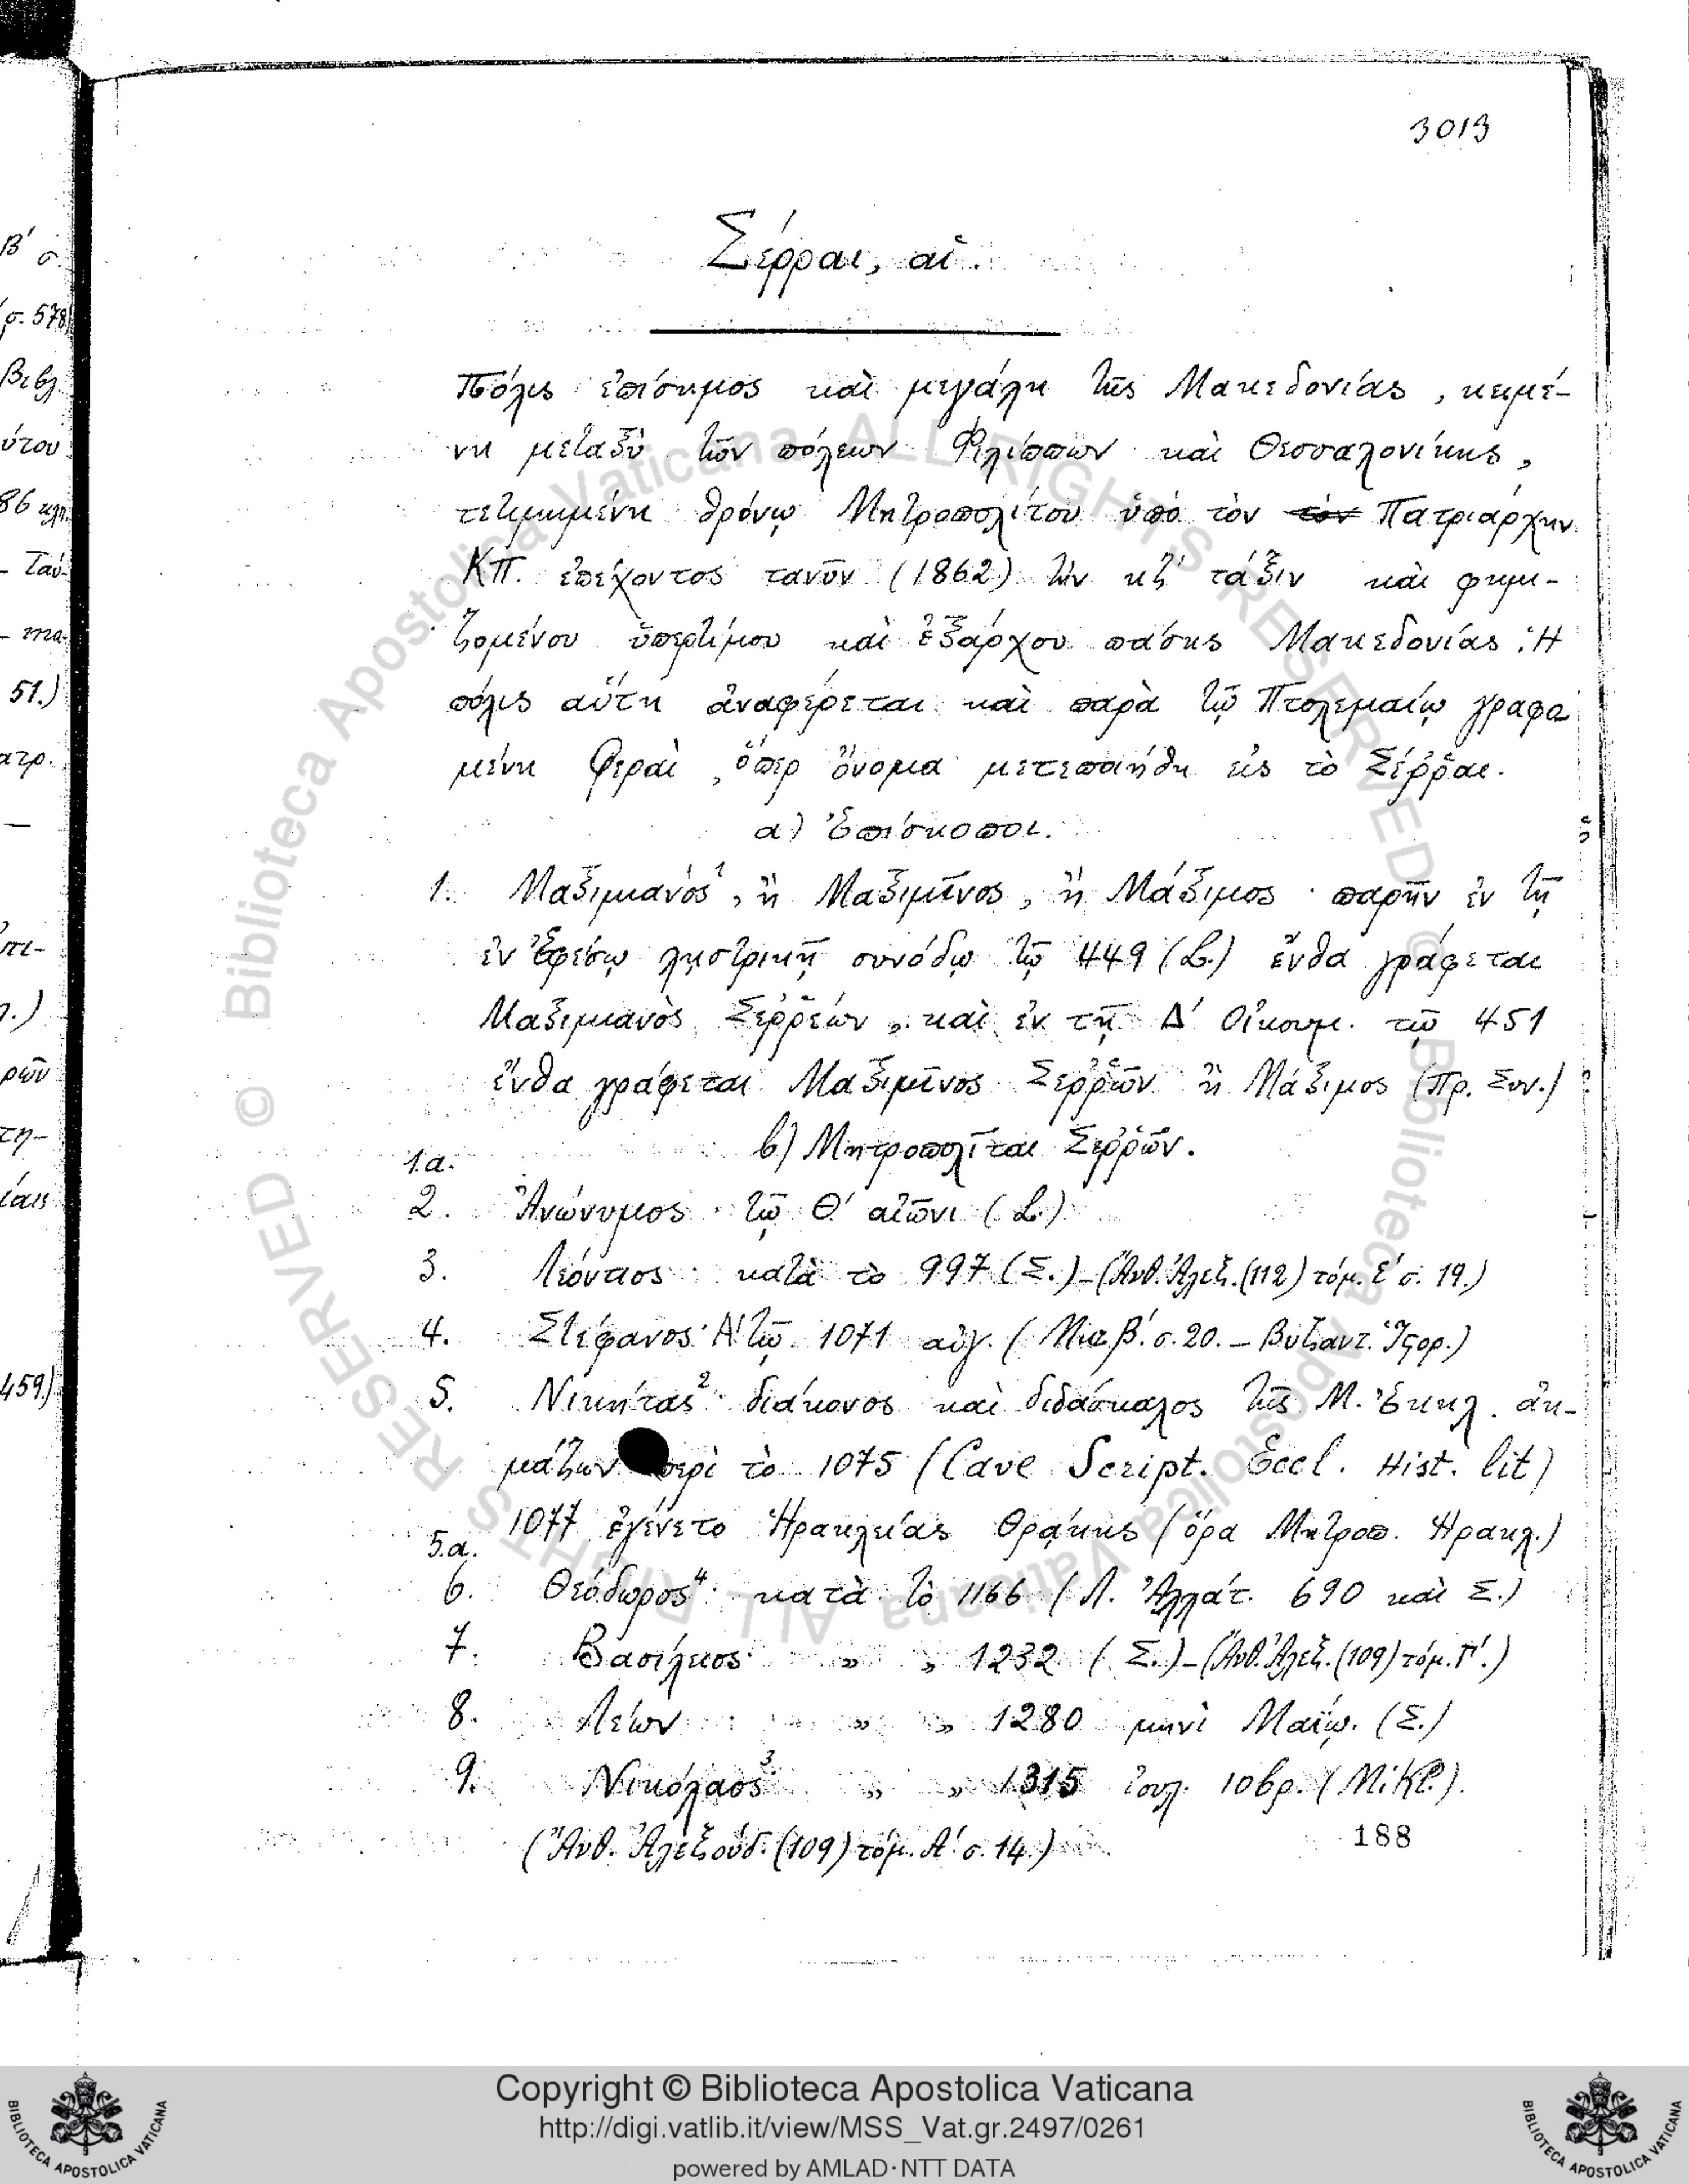 3013
Σέρραι, αἱ.
Πόλις ἐπίσημος καὶ μεγάλη τῆς Μακεδονίας, κειμέ-
νη μεταξὺ τῶν πόλεων Φιλίππων καὶ Θεσσαλονίκης,
τετιμημένη θρόνῳ Μητροπολίτου ὑπὸ τὸν τὸν Πατριάρχην
ΚΠ. ἐπέχοντος τανῦν (1862) τὴν κζʹ τάξιν καὶ φημι-
ζομένου ὑπερτίμου καὶ ἐξάρχου πάσης Μακεδονίας. Ἡ
πόλις αὕτη ἀναφέρεται καὶ παρὰ τῷ Πτολεμαίῳ γραφο
μένη Φεραὶ, ὅπερ ὄνομα μετεποιήθη εἰς τὸ Σέῤῥαι.
α) Ἐπίσκοποι.
1. Μαξιμιανός¹, ἢ Μαξιμῖνος, ἢ Μάξιμος · παρῆν ἐν τῇ
ἐν Ἐφέσῳ λῃστρικῇ συνόδῳ τῷ 449 (L.) ἔνθα γράφεται
Μαξιμιανὸς Σεῤῥέων, καὶ ἐν τῇ Δʹ Οἰκουμ. τῷ 451
ἔνθα γράφεται Μαξιμῖνος Σεῤῥῶν ἢ Μάξιμος (Πρ. Συν.)
β) Μητροπολῖται Σεῤῥῶν.
1.α.
2. Ἀνώνυμος · τῷ Θʹ αἰῶνι (L.)
3. Λεόντιος · κατὰ τὸ 997 (Σ.) - (Ἄνθ. Ἀλεξ. (112) τόμ. Εʹ σ. 19.)
4. Στέφανος Αʹ· τῷ 1071 αὐγ. (Μια βʹ. σ. 20. – Βυζαντ. Ἱστορ.)
5. Νικήτας² · διάκονος καὶ διδάσκαλος τῆς Μ. Ἐκκλ. ἀκ-
μάζων περὶ τὸ 1075 (Cave Script. Eccl. Hist. lit)
1077 ἐγένετο Ἡρακλείας Θράκης (ὅρα Μητροπ. Ἡρακλ.)
5.α.
6. Θεόδωρος⁴ · κατὰ τὸ 1166 (Λ. Ἀλλάτ. 690 καὶ Σ.)
7. Βασίλειος · „ „ 1232 (Σ.) - (Ἄνθ. Ἀλεξ. (109) τόμ. Γʹ.)
8. Λέων · „ „ 1280 μηνὶ Μαΐῳ. (Σ.)
9. Νικόλαος³ · „ „ 1315 ἰουλ. ἰοβρ. (Μικλ.).
(Ἄνθ. Ἀλεξούδ. (109) τόμ. Αʹ σ. 14.)
188
Copyright © Biblioteca Apostolica Vaticana
http://digi.vatlib.it/view/MSS_Vat.gr.2497/0261
powered by AMLAD·NTT DATA